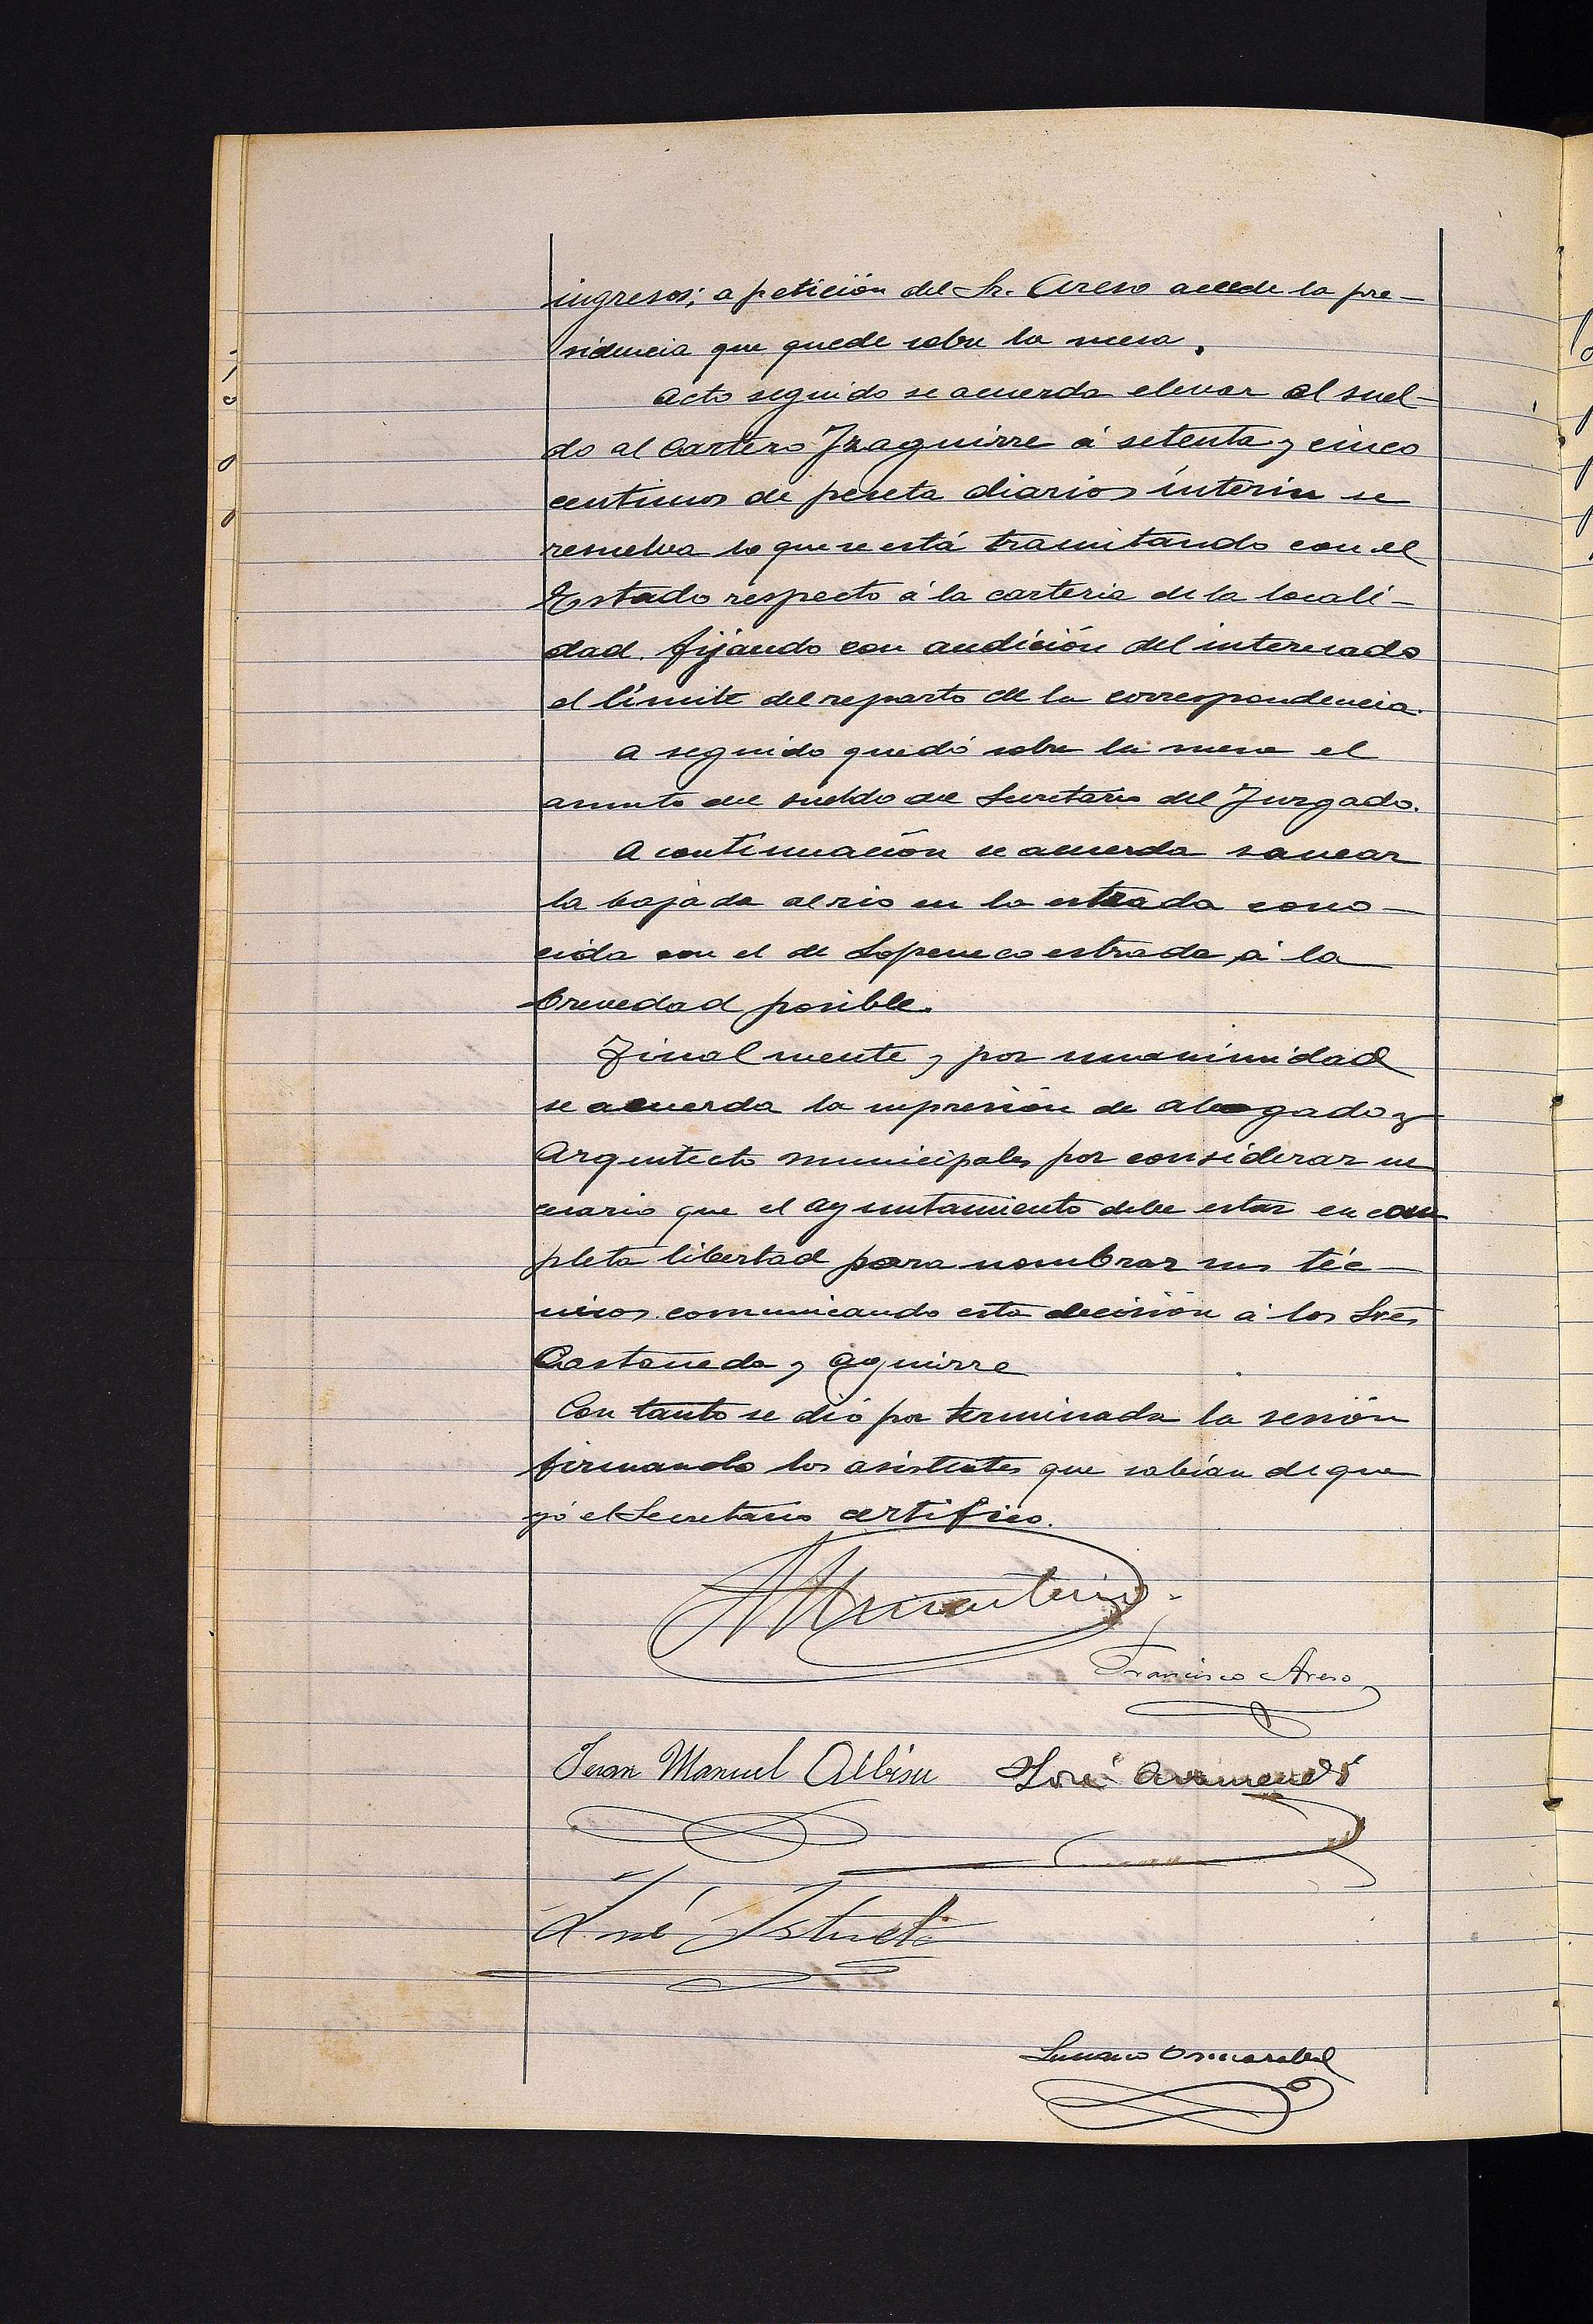 ingresos; a petición del Sr. Areso accede la pre-
sidencia que quede sobre la mesa.
Acto seguido se acuerda elevar el suel-
do al cartero Izaguirre á setenta y cinco
centimos de peseta diarios ínterin se
resuelva lo que se está tramitando con el
Estado respecto á la carteria de la locali-
dad. fijando con audición del interesado
el límite del reparto de la correspondencia.
A seguido quedó sobre la mesa el
asunto del sueldo del Secretario del Juzgado.
A continuación se acuerda sanear
la bajada al rio en la estrada cono-
cida con el de Lopeneco estrada á la
brevedad posible.
Finalmente y por unanimidad
se acuerda la supresión de abogado y
Arquitecto municipales por considerar ne
cesario que el Ayuntamiento debe estar en com
pleta libertad para nombrar sus téc-
nicos. comunicando esta decisión á los Sres
Castañeda y Aguirre
Con tanto se dió por terminada la sesión
firmando los asistentes que sabían de que
yó el Secretario certifico.
Francisco Areso
Juan Manuel Albisu José Aramendi
José Istueta